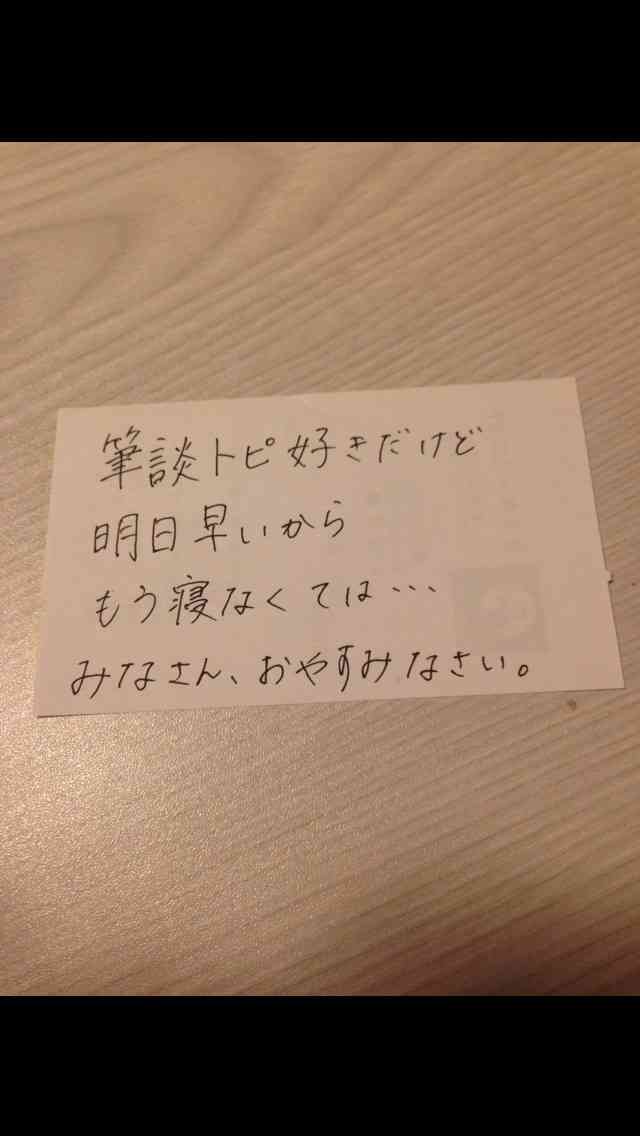 筆談トピ好きだけど
明日早いから
もう寝なくては…
みなさん、おやすみなさい。